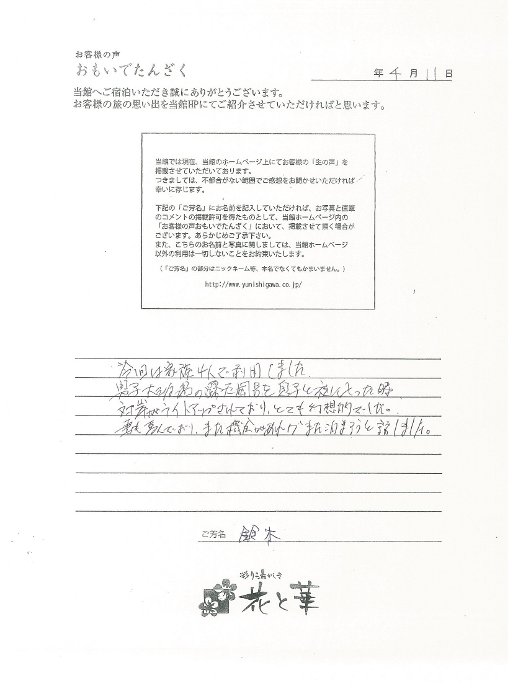 お客様の声
おもいでたんざく
年 4 月 11 日
当館へご宿泊いただき誠にありがとうございます。
お客様の旅の思い出を当館HPにてご紹介させていただければと思います。
当館では現在、当館のホームページ上にてお客様の「生の声」を
掲載させていただいております。
つきましては、不都合がない範囲でご感想をお聞かせいただければ
幸いに存じます。
下記の「ご芳名」にお名前を記入していただければ、お写真と直筆
のコメントの掲載許可を得たものとして、当館ホームページ内の
「お客様の声おもいでたんざく」において、掲載させて頂く場合が
ございます。あらかじめご了承下さい。
また、こちらのお名前と写真に関しましては、当館ホームページ
以外の利用は一切しないことをお約束いたします。
（「ご芳名」の部分はニックネーム等、本名でなくてもかまいません。）
http://www.yunishigawa.co.jp/
今回は家族4人で利用しました。
男子大浴場の露天風呂を息子と夜に入った時
対岸がライトアップされており、とても幻想的でした。
妻も喜んでおり、また機会があればまた泊まろうと話しました。
ご芳名 鈴木
花と華